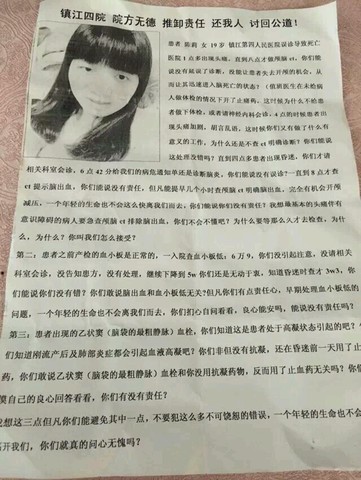 镇江四院 院方无德 推卸责任 还我人 讨回公道！
患者 陈莉 女 19岁 镇江第四人民医院误诊导致死亡
医院1点多出现头痛，直到八点才做颅脑ct，你们能
说没有延误了诊断，没能让患者失去开颅的机会，从
而让其迅速进入脑死亡的状态？
人做体检的情况下开了止痛药，这时候为什么不给患
者做下体检，或者请神经内科会诊，4点的时候患者出
现头痛加剧，胡言乱语，这时候你们又有做了什么有
意义的工作，为什么还是不查ct明确诊断？你们能说
这处理没错吗？直到四点多患者出现昏迷，你们才请
相关科室会诊，6点42分给我们的病危通知单还是诊断脑炎，你们能说没有误诊？直到8点才查
ct提示脑出血，你们能说没有责任，但凡能提早几个小时查颅脑ct明确脑出血，完全有机会开颅
减压，一个年轻的生命不会这么快离我们而去，你们能说你们没有责任？我想最基本的头痛伴有
意识障碍的病人要急查颅脑ct排除脑出血，你们不会不懂吧？为什么要等那么久才去检查，为什
么，为什么？你叫我们怎么接受？
第二：患者之前产检的血小板是正常的，一入院查血小板低：6万9，你们没引起注意，没请相关
科室会诊，没告知患方，没有处理，继续下降到5w你们还是无动于衷，知道昏迷时查才3w3，你
们能说你们没有错？你们敢说脑出血和血小板低无关?但凡你们有点责任心，早期处理血小板低的
问题，一个年轻的生命也不会离我们而去，你们扪心自问看看，良心能安吗，能说没有责任吗？
第三：患者出现的乙状窦（脑袋的最粗静脉）血栓，你们知道这是患者处于高凝状态引起的吧？
们知道刚流产后及肺部炎症都会引起血液高凝吧？你们非但没有抗凝，还在昏迷前一天用了止
药，你们敢说乙状窦（脑袋的最粗静脉）血栓和你没用抗凝药物，反而用了止血药无关吗？
摸自己的良心回答看看，你们有没有责任？
想这三点但凡你们能避免其中一点，不要犯这么多不可饶恕的错误，一个年轻的生命也不会
离开我们，你们就真的问心无愧吗？